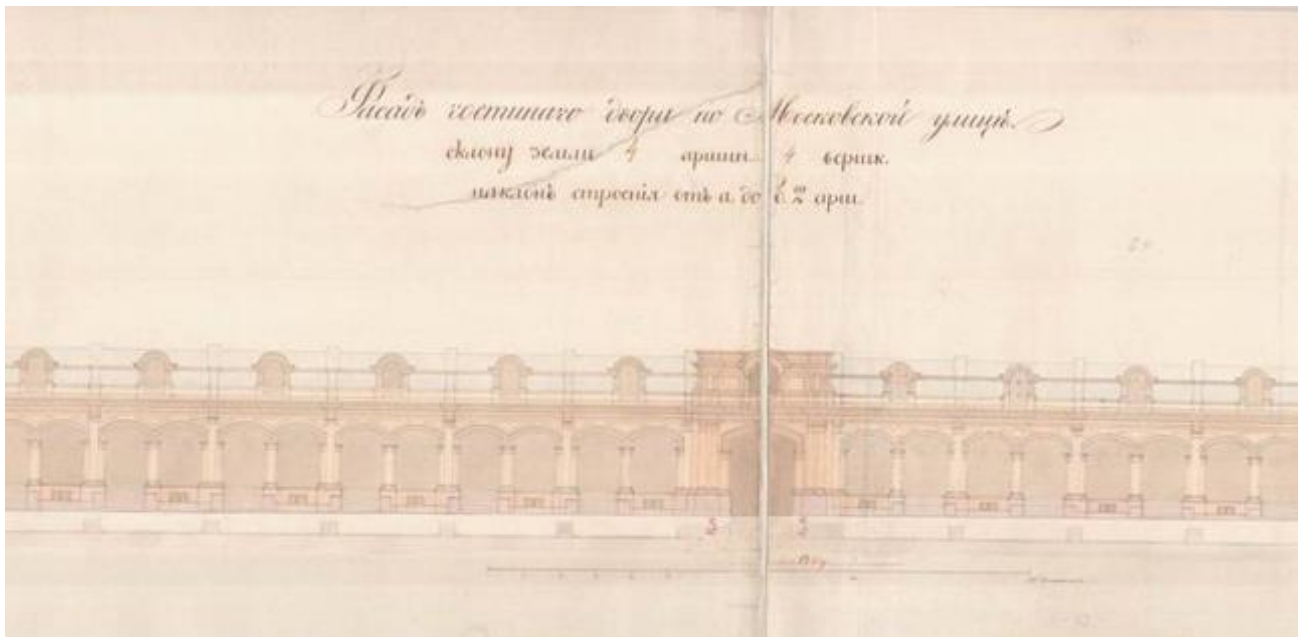 Фасадъ гостинаго двора по Московской улицѣ.
склону земли 4 аршин. 4 вершк.
наклонъ строенія отъ а. до б. 2 арш.